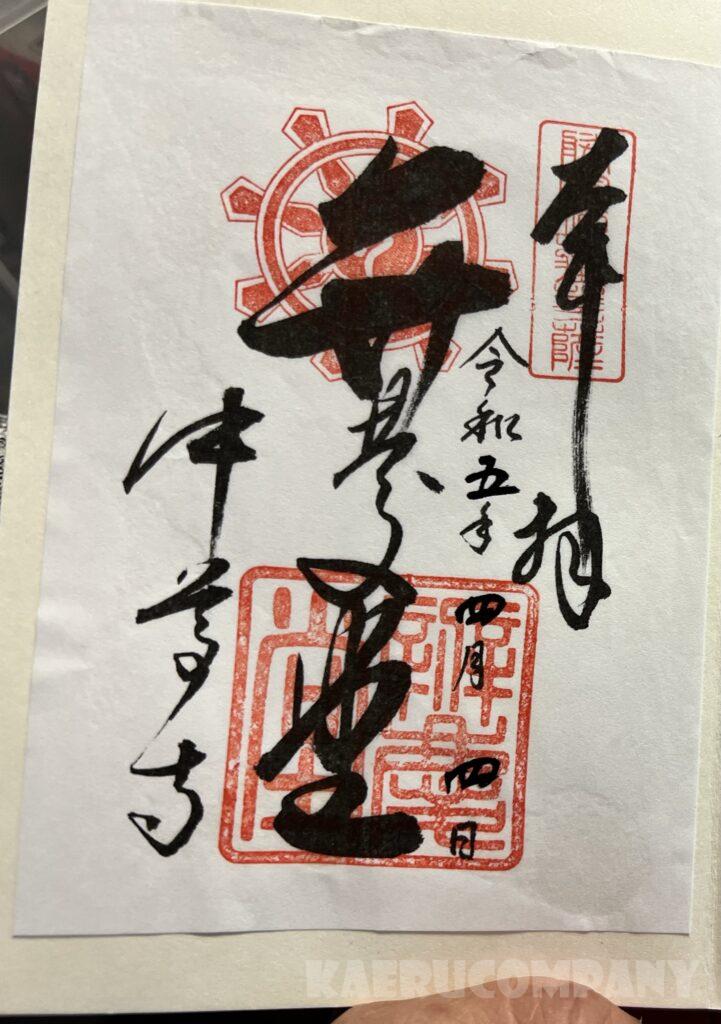 奉拝
令和五年四月四日
弁慶堂
中尊寺
KAERUCOMPANY